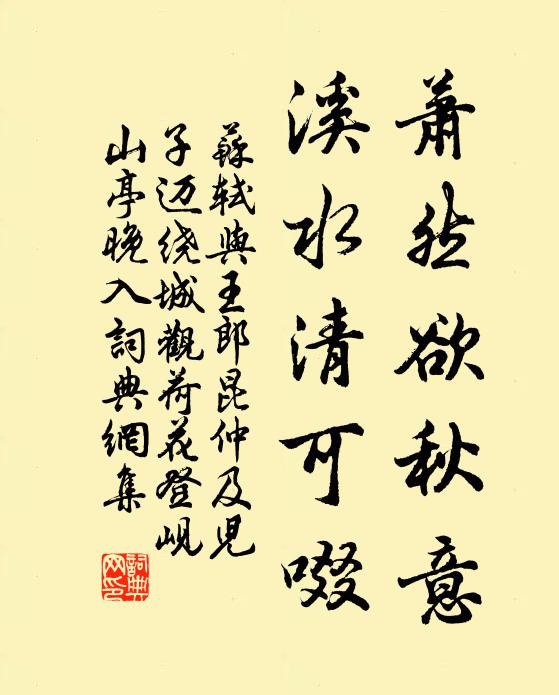 蕭然欲秋意
溪水清可啜
蘇軾與王郎昆仲及児
子迈绕城觀荷花登岘
山亭晚入詞典網集
詞典
网印